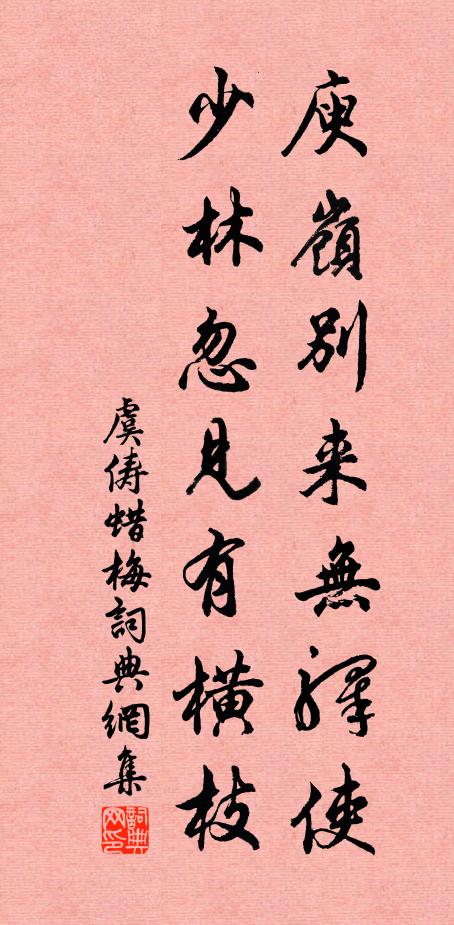 庾嶺別来無驛使
少林忽見有橫枝
虞儔蜡梅詞典網集
詞典網印